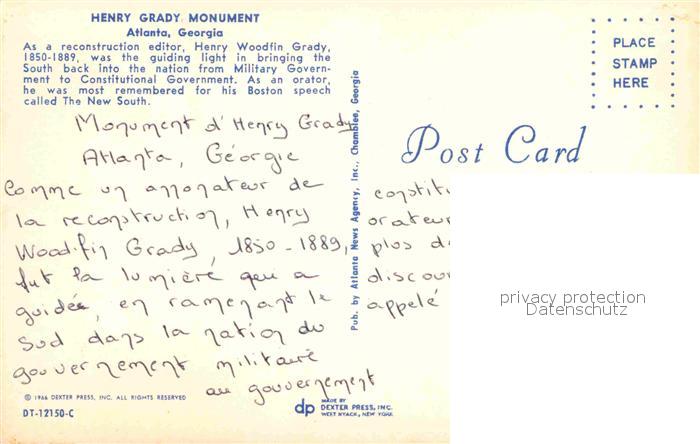 HENRY GRADY MONUMENT
Atlanta, Georgia
As a reconstruction editor, Henry Woodfin Grady,
1850-1889, was the guiding light in bringing the
South back into the nation from Military Govern-
ment to Constitutional Government. As an orator,
he was most remembered for his Boston speech
called The New South.
Monument d'Henry Grady
Atlanta, Géorgie
Comme un annonateur de
la reconstruction, Henry
Woodfin Grady, 1850-1889,
fut la lumière qui a
guidée, en ramenant le
Sud dans la nation du
gouvernement militaire
au gouvernement
© 1966 DEXTER PRESS, INC. ALL RIGHTS RESERVED
DT-12150-C
Pub. by Atlanta News Agency, Inc., Chamblee, Georgia
dp MADE BY
DEXTER PRESS, INC.
WEST NYACK, NEW YORK
PLACE
STAMP
HERE
Post Card
constitu
orateur
plus d
discou
appelé
privacy protection
Datenschutz